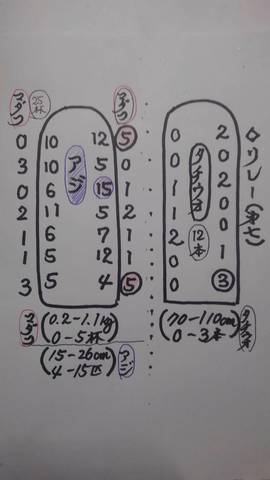 マダコ 25杯 マダコ
0 10 12 5
3 10 5 0
0 6 15 1
2 11 5 2
1 6 7 1
1 5 12 1
3 5 4 5
アジ
マダコ (0.2-1.1kg
0-5杯)
(15-26cm
4-15匹) アジ
◇リレー(第七)
0 2
0 0
1 2
1 0
2 0
0 1
0 3
タチウオ
12本
(70-110cm
0-3本) タチウオ